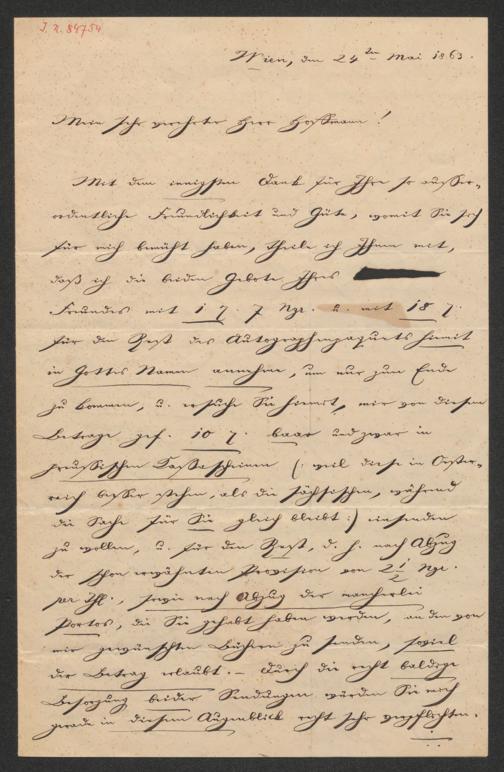 J. N. 84754
Wien, den 24ten Mai 1863.
Mein sehr verehrter Herr Hoffmann!
Mit dem innigsten Dank für Ihre so ausser-
ordentliche Freundlichkeit und Güte, womit Sie sich
für mich bemüht haben, theile ich Ihnen mit,
daß ich die beiden Gebote Ihres
Freundes mit 1 7 Ngr. u. mit 18
für den Rest des Autographenpaquets hiemit
in Gottes Namen annehme, um nur zum Ende
zu kommen, u. ersuche Sie hiemit, mir von diesem
Betrage gef. 10 baar und zwar in
preussischen Kassascheinen (: weil diese in Oester-
reich besser stehen, als die sächsischen, während
die Sache für Sie gleich bleibt :) einsenden
zu wollen, u. für den Rest, d. h. nach Abzug
der schon erwähnten Provision von 2½ Ngr.
per Thl., sowie nach Abzug der mancherlei
Portos, die Sie gehabt haben werden, an den von
mir gewünschten Büchern zu senden, soviel
der Betrag erlaubt. – Durch die recht baldige
Besorgung beider Sendungen würden Sie mich
gerade in diesem Augenblick recht sehr verpflichten.